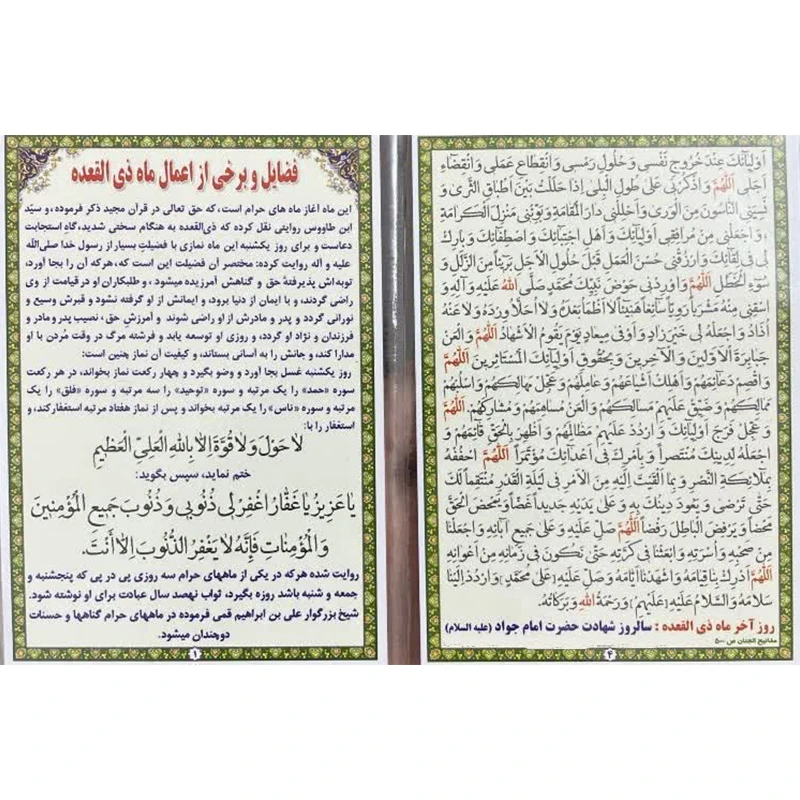 فضایل و برخی از اعمال ماه ذی القعده
این ماه آغاز ماه های حرام است، که حق تعالی در قرآن مجید ذکر فرموده، و سیّد
ابن طاووس روایتی نقل کرده که ذی‌القعده به هنگام سختی شدید، گاهِ استجابت
دعاست و برای روز یکشنبه این ماه نمازی با فضیلتِ بسیار از رسول خدا صلی‌الله
علیه و آله روایت کرده: مختصر آن فضیلت این است که، هرکه آن را بجا آورد،
توبه‌اش پذیرفتهٔ حق و گناهش آمرزیده میشود، و طلبکاران او در قیامت از وی
راضی گردند، و با ایمان از دنیا برود، و ایمانش از او گرفته نشود و قبرش وسیع و
نورانی گردد و پدر و مادرش از او راضی شوند و آمرزش حق، نصیب پدر و مادر و
فرزندان و نژاد او گردد، و روزی او توسعه یابد و فرشته مرگ در وقت مُردن با او
مدارا کند، و جانش را به آسانی بستاند، و کیفیت آن نماز چنین است:
روز یکشنبه غسل بجا آورد و وضو بگیرد و چهار رکعت نماز بخواند، در هر رکعت
سوره «حمد» را یک مرتبه و سوره «توحید» را سه مرتبه و سوره «فلق» را یک
مرتبه و سوره «ناس» را یک مرتبه بخواند و پس از نماز هفتاد مرتبه استغفار کند، و
استغفار را با:
لَا حَوْلَ وَ لَا قُوَّةَ إِلَّا بِاللهِ الْعَلِيِّ الْعَظِيمِ
ختم نماید، سپس بگوید:
يَا عَزِيزُ يَا غَفَّارُ اغْفِرْ لِي ذُنُوبِي وَ ذُنُوبَ جَمِيعِ الْمُؤْمِنِينَ
وَ الْمُؤْمِنَاتِ فَإِنَّهُ لَا يَغْفِرُ الذُّنُوبَ إِلَّا أَنْتَ.
روایت شده هرکه در یکی از ماههای حرام سه روزی پی در پی که پنجشنبه و
جمعه و شنبه باشد روزه بگیرد، ثواب نهصد سال عبادت برای او نوشته شود.
شیخ بزرگوار علی بن ابراهیم قمی فرموده در ماههای حرام گناهها و حسنات
دوچندان میشود.
۱
أَوْلِيَائِكَ عِنْدَ خُرُوجِ نَفْسِي وَ حُلُولِ رَمْسِي وَ انْقِطَاعِ عَمَلِي وَ انْقِضَاءِ
أَجَلِي اَللّٰهُمَّ وَ اذْكُرْنِي عَلَى طُولِ الْبِلَى إِذَا حَلَلْتُ بَيْنَ أَطْبَاقِ الثَّرَى وَ
نَسِيَنِي النَّاسُونَ مِنَ الْوَرَى وَ أَحْلِلْنِي دَارَ الْمُقَامَةِ وَ بَوِّئْنِي مَنْزِلَ الْكَرَامَةِ
وَ اجْعَلْنِي مِنْ مُرَافِقِي أَوْلِيَائِكَ وَ أَهْلِ اجْتِبَائِكَ وَ اصْطِفَائِكَ وَ بَارِكْ
لِي فِي لِقَائِكَ وَ ارْزُقْنِي حُسْنَ الْعَمَلِ قَبْلَ حُلُولِ الْأَجَلِ بَرِيئاً مِنَ الزَّلَلِ وَ
سُوءِ الْخَطَلِ اَللّٰهُمَّ وَ أَوْرِدْنِي حَوْضَ نَبِيِّكَ مُحَمَّدٍ صَلَّى اللهُ عَلَيْهِ وَ آلِهِ وَ
اسْقِنِي مِنْهُ مَشْرَباً رَوِيّاً سَائِغاً هَنِيئاً لَا أَظْمَأُ بَعْدَهُ وَ لَا أُحَلَّأُ وِرْدَهُ وَ لَا عَنْهُ
أُذَادُ وَ اجْعَلْهُ لِي خَيْرَ زَادٍ وَ أَوْفَى مِيعَادٍ يَوْمَ يَقُومُ الْأَشْهَادُ اَللّٰهُمَّ وَ الْعَنْ
جَبَابِرَةَ الْأَوَّلِينَ وَ الْآخِرِينَ وَ بِحُقُوقِ أَوْلِيَائِكَ الْمُسْتَأْثِرِينَ اَللّٰهُمَّ
وَ اقْصِمْ دَعَائِمَهُمْ وَ أَهْلِكْ أَشْيَاعَهُمْ وَ عَامِلَهُمْ وَ عَجِّلْ مَهَالِكَهُمْ وَ اسْلُبْهُمْ
مَمَالِكَهُمْ وَ ضَيِّقْ عَلَيْهِمْ مَسَالِكَهُمْ وَ الْعَنْ مُسَاهِمَهُمْ وَ مُشَارِكَهُمْ. اَللّٰهُمَّ
وَ عَجِّلْ فَرَجَ أَوْلِيَائِكَ وَ ارْدُدْ عَلَيْهِمْ مَظَالِمَهُمْ وَ أَظْهِرْ بِالْحَقِّ قَائِمَهُمْ وَ
اجْعَلْهُ لِدِينِكَ مُنْتَصِراً وَ بِأَمْرِكَ فِي أَعْدَائِكَ مُؤْتَمِراً اَللّٰهُمَّ احْفُفْهُ
بِمَلَائِكَةِ النَّصْرِ وَ بِمَا أَلْقَيْتَ إِلَيْهِ مِنَ الْأَمْرِ فِي لَيْلَةِ الْقَدْرِ مُنْتَقِماً لَكَ
حَتَّى تَرْضَى وَ يَعُودَ دِينُكَ بِهِ وَ عَلَى يَدَيْهِ جَدِيداً غَضّاً وَ يَمْحَضَ الْحَقَّ
مَحْضاً وَ يَرْفِضَ الْبَاطِلَ رَفْضاً اَللّٰهُمَّ صَلِّ عَلَيْهِ وَ عَلَى جَمِيعِ آبَائِهِ وَ اجْعَلْنَا
مِنْ صَحْبِهِ وَ أُسْرَتِهِ وَ ابْعَثْنَا فِي كَرَّتِهِ حَتَّى نَكُونَ فِي زَمَانِهِ مِنْ أَعْوَانِهِ
اَللّٰهُمَّ أَدْرِكْ بِنَا قِيَامَهُ وَ أَشْهِدْنَا أَيَّامَهُ وَ صَلِّ عَلَيْهِ [عَلَى مُحَمَّدٍ] وَ ارْدُدْ إِلَيْنَا
سَلَامَهُ وَ السَّلَامُ عَلَيْهِ [عَلَيْهِمْ] وَ رَحْمَةُ اللهِ وَ بَرَكَاتُهُ.
روز آخر ماه ذی القعده : سالروز شهادت حضرت امام جواد (علیه السلام)
مفاتیح الجنان ص ۵۰۰
۴